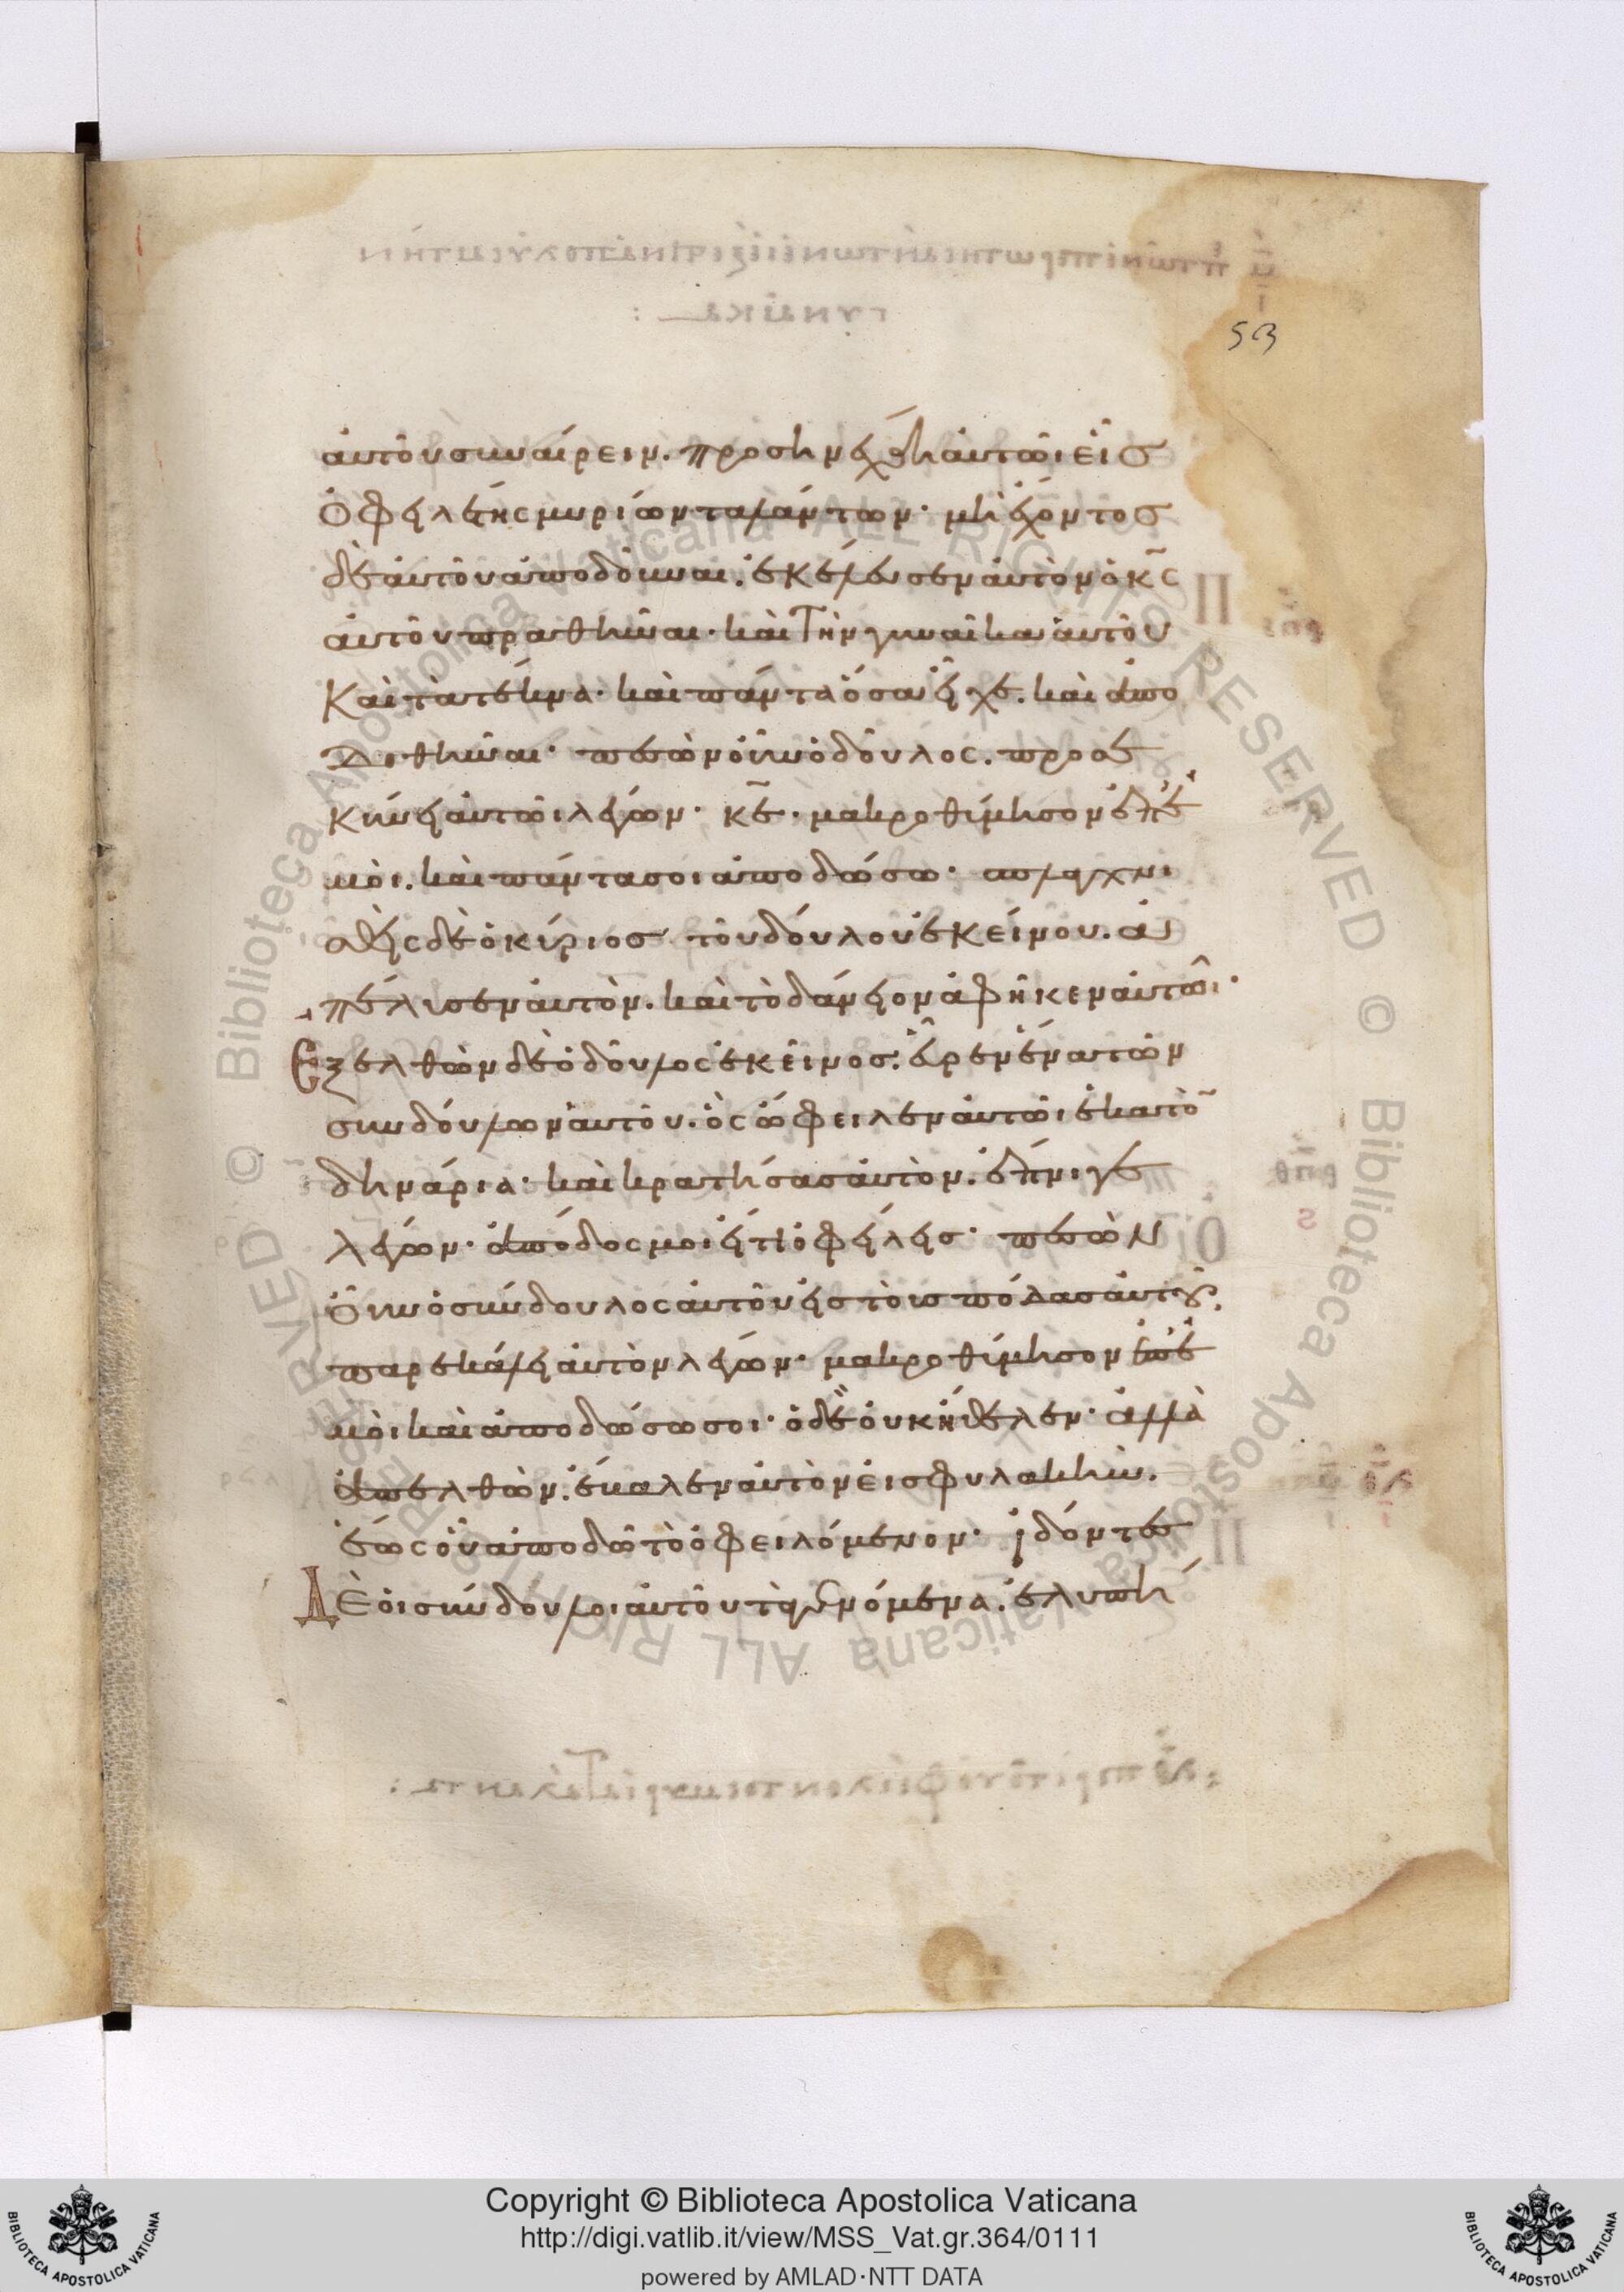 53
αὐτοῦ συναίρειν. προσηνέχθη αὐτῶι εἷς
ὀφειλέτης μυρίων ταλάντων· μὴ ἔχοντος
δὲ αὐτοῦ ἀποδοῦναι. ἐκέλευσεν αὐτὸν ὁ κ̅ς̅
αὐτοῦ πραθῆναι· καὶ τὴν γυναῖκα αὐτοῦ
καὶ τὰ τέκνα· καὶ πάντα ὅσα εἶχε. καὶ ἀπο
δοθῆναι· πεσὼν οὖν ὁ δοῦλος. προσε
κύνει αὐτῶι λέγων· κ̅ε̅. μακροθύμησον ἐπ' ἐ
μοὶ. καὶ πάντα σοι ἀποδώσω· σπλαγχνι
σθεὶς δὲ ὁ κύριος τοῦ δούλου ἐκείνου. ἀ
πέλυσεν αὐτὸν. καὶ τὸ δάνειον ἀφῆκεν αὐτῶι·
Ἐξελθὼν δὲ ὁ δοῦλος ἐκεῖνος. εὗρεν ἕνα τῶν
συνδούλων αὐτοῦ. ὃς ὤφειλεν αὐτῶι ἑκατὸ̅
δηνάρια· καὶ κρατήσας αὐτὸν. ἔπνιγε
λέγων· ἀπόδος μοι εἴ τι ὀφείλεις· πεσὼν
οὖν ὁ σύνδουλος αὐτοῦ εἰς τοὺς πόδας αὐτοῦ.
παρεκάλει αὐτὸν λέγων· μακροθύμησον ἐπ' ἐ
μοὶ καὶ ἀποδώσω σοι· ὁ δὲ οὐκ ἤθελεν· ἀλλὰ
ἀπελθὼν. ἔβαλεν αὐτὸν εἰς φυλακὴν.
ἕως οὗ ἀποδῶ τὸ ὀφειλόμενον· ἰδόντες
Δὲ οἱ σύνδουλοι αὐτοῦ τὰ γενόμενα. ἐλυπή
Copyright © Biblioteca Apostolica Vaticana
http://digi.vatlib.it/view/MSS_Vat.gr.364/0111
powered by AMLAD·NTT DATA